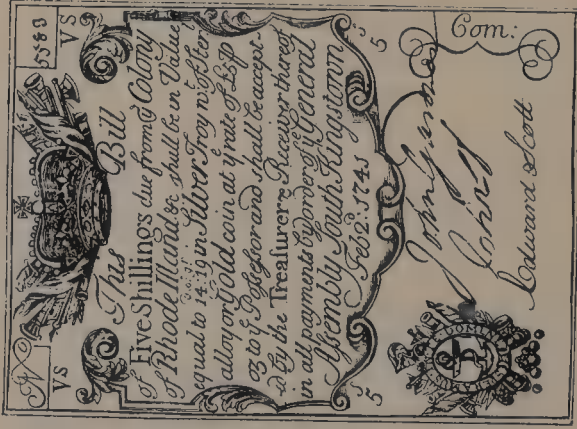 No 5583
VS VS
This Bill
of Five Shillings due from ye Colony
of Rhode Island &c shall be in Value
equal to in Silver Troy wt Ster
alloy or Gold coin at ye rate of
oz to ye Possessor and shall be accept
ed by the Treasurer & Receivers thereof
in all payments by Order of ye General
Assembly South Kingstown
Feb 2d: 1741
5s 5s
Com:
John
John
Edward Scott